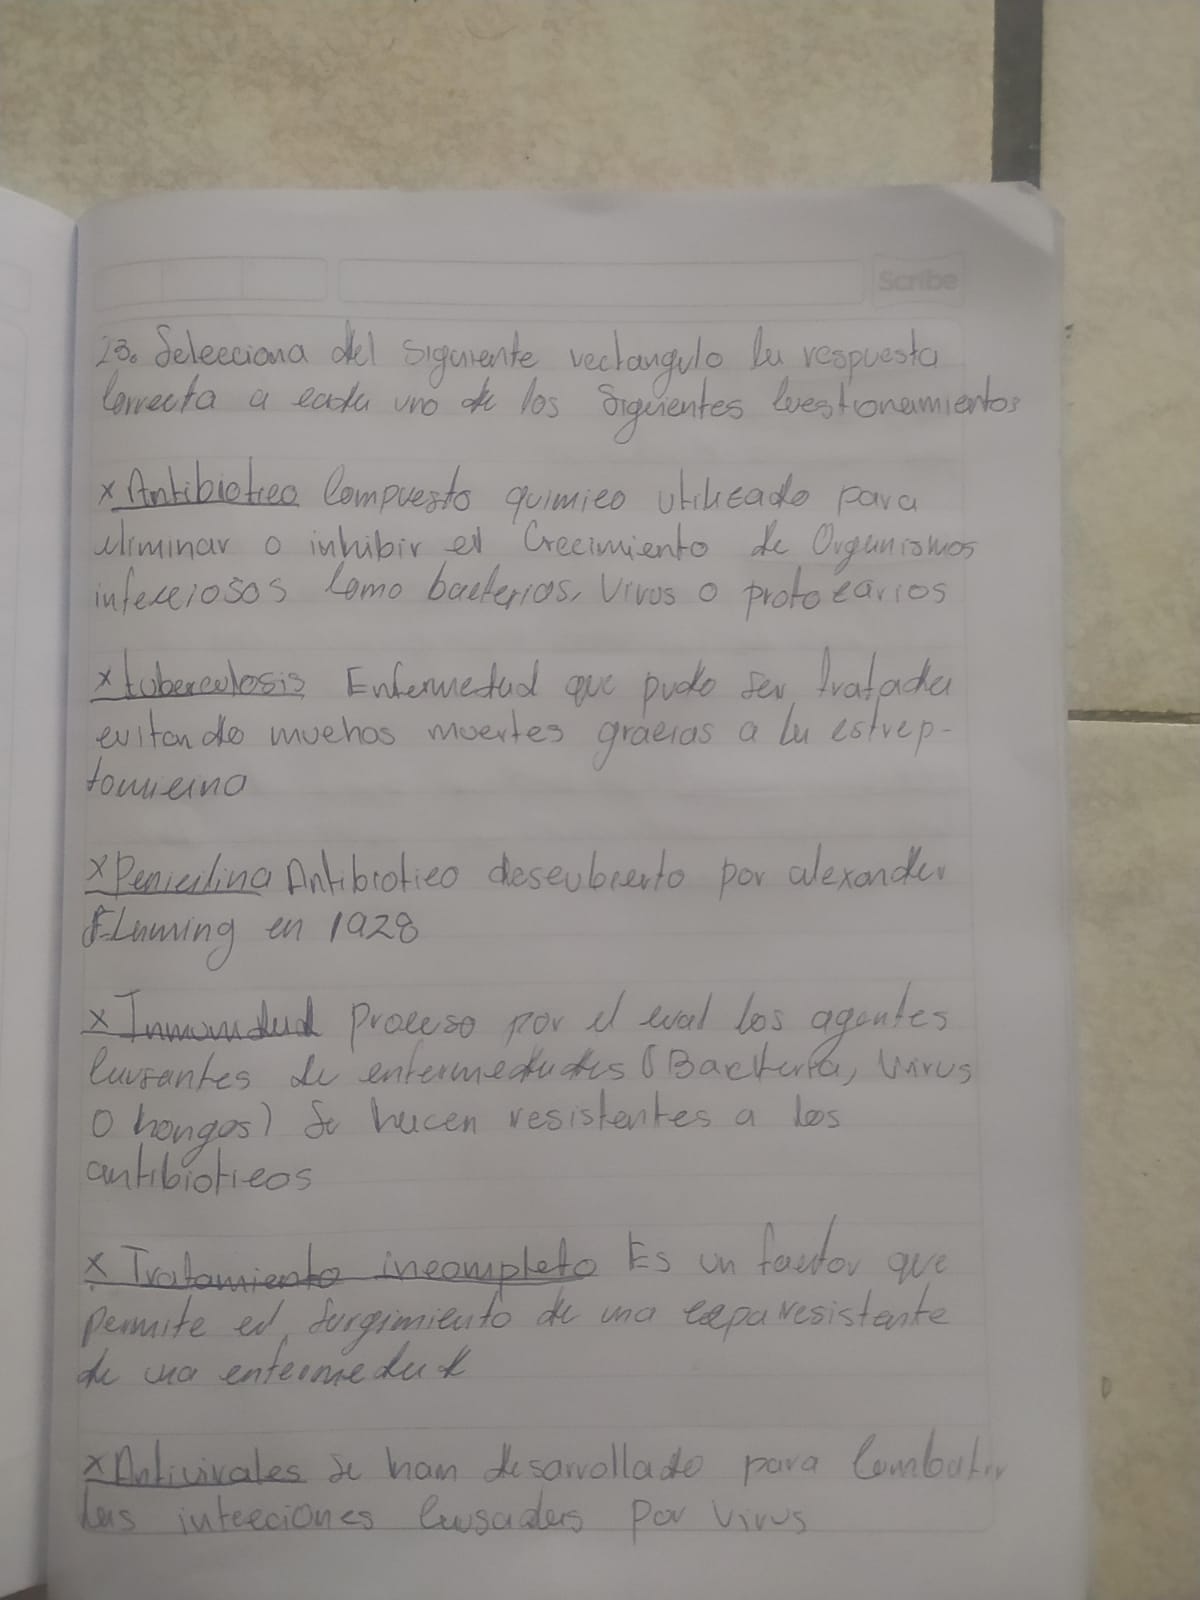 Scribe
23. Selecciona del siguiente rectangulo la respuesta
correcta a cada uno de los siguientes cuestionamientos
x Antibiotico Compuesto quimico utilizado para
eliminar o inhibir el Crecimiento de Organismos
infecciosos como bacterias, Virus o protozarios
x tuberculosis Enfermedad que pudo ser tratada
evitando muchas muertes gracias a la estrep-
tomicina
x Penicilina Antibiotico descubierto por alexander
Fleming en 1928
x Inmunidad proceso por el cual los agentes
causantes de enfermedades (Bacteria, Virus
O hongos) Se hacen resistentes a los
antibioticos
x Tratamiento incompleto Es un factor que
permite el surgimiento de una cepa resistente
de una enfermedad
x Antivirales se han desarrollado para Combatir
las infecciones causadas por Virus